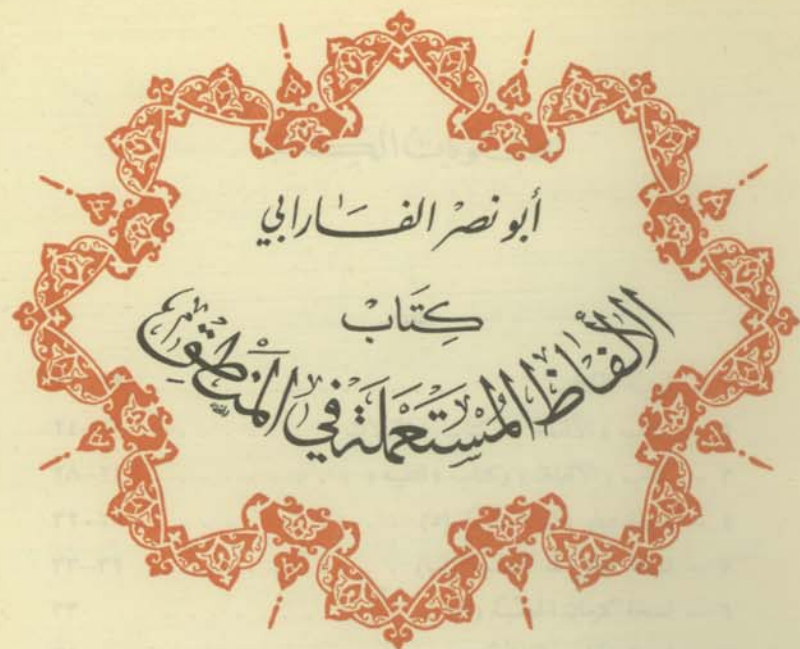 أبو نصْر الفَارابي
كِتَابْ
الألفاظ المُسْتَعمَلة في المَنطِق